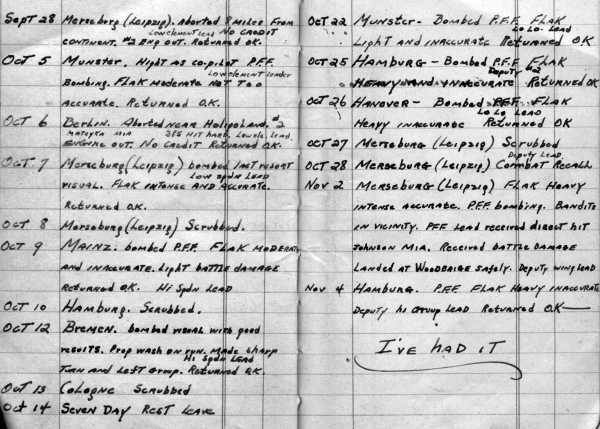 Sept 28 Merseburg (Leipzig). Aborted 8 miles from
Low element lead NO CREDIT
continent. #2 Eng out. Returned OK.
Oct 5 Munster. Night as co-pilot P.F.F.
Low element leader
Bombing. Flak moderate NOT TOO
accurate. Returned O.K.
Oct 6 Berlin. Aborted near Heligoland. #2
MIA 385 Hit hard. Low ele. Lead
engine out. No Credit Returned O.K.
Oct 7 Merseburg (Leipzig) bombed last resort
Low Sqdn Lead
visual. Flak intense and accurate.
Returned O.K.
Oct 8 Merseburg (Leipzig) Scrubbed.
Oct 9 Mainz. bombed P.F.F. Flak moderate
and inaccurate. Light battle damage
Returned O.K. Hi Sqdn Lead
Oct 10 Hamburg. Scrubbed.
Oct 12 Bremen. bombed visual with good
results. Prop wash on run. Made sharp
Hi Sqdn Lead
Turn and Left Group. Returned O.K.
Oct 13 Cologne Scrubbed
Oct 14 Seven Day Rest Leave
Oct 22 Munster - Bombed P.F.F. Flak
Lo Lo Lead
Light and inaccurate Returned OK
Oct 25 Hamburg - Bombed P.F.F. Flak
Deputy #2
Heavy and inaccurate Returned OK
Oct 26 Hanover - Bombed P.F.F. Flak
Lo Lo Lead
Heavy inaccurate Returned OK
Oct 27 Merseburg (Leipzig) Scrubbed
Deputy Lead
Oct 28 Merseburg (Leipzig) Combat Recall
Nov 2 Merseburg (Leipzig) Flak Heavy
intense accurate. P.F.F. bombing. Bandits
in vicinity. PFF Lead received direct hit
Johnson MIA. Received battle damage
Landed at Woodbridge safely. Deputy wing lead
Nov 4 Hamburg. P.F.F. Flak Heavy inaccurate
Deputy hi Group Lead Returned O.K—
I've had it